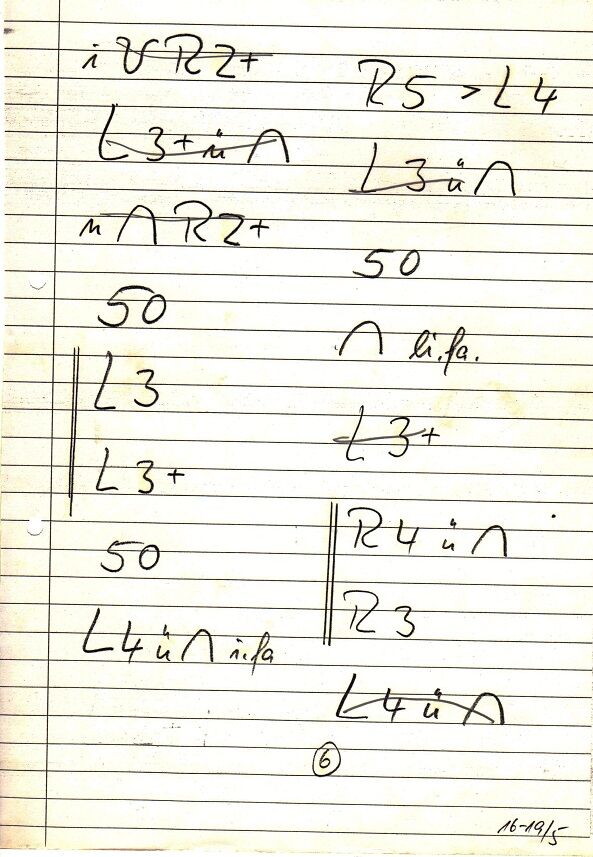 i V R2+
L3+ ü ∩
∩ R2+
50
L3
L3+
50
L4 ü ∩ i.fa
R5 > L4
L3 ü ∩
50
∩ li.fa.
L3+
R4 ü ∩
R3
L4 ü ∩
6
16-19/5